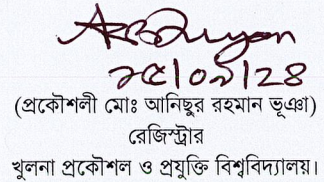 ২৫|০৯|২৪
(প্রকৌশলী মোঃ আনিছুর রহমান ভূঞা)
রেজিস্ট্রার
খুলনা প্রকৌশল ও প্রযুক্তি বিশ্ববিদ্যালয়।